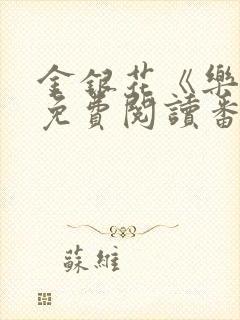 金銀花《樂
免費閱讀番
蘇維